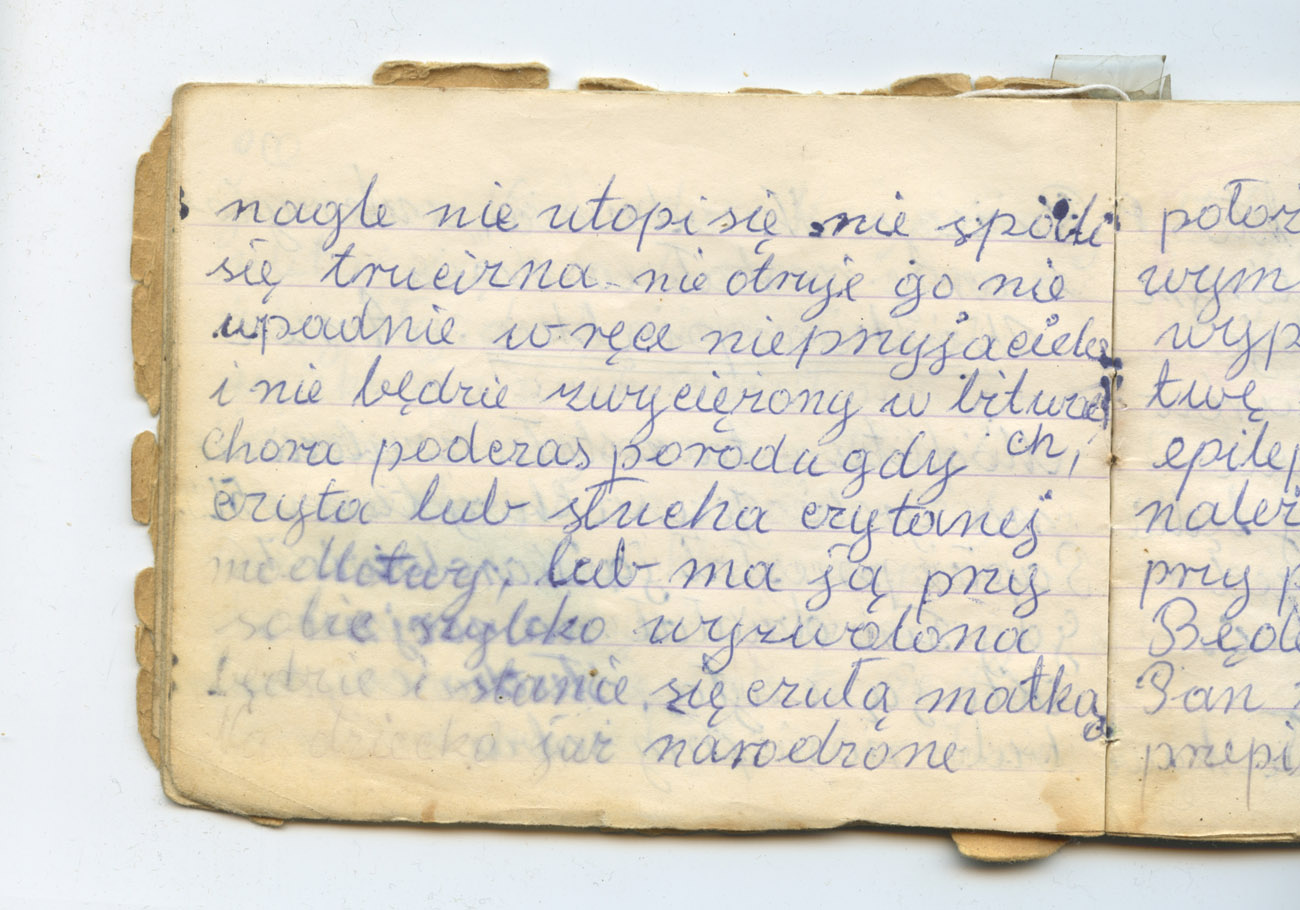 nagle nie utopi się nie spali
się trucizna nie otruje go nie
upadnie w ręce nieprzyjaciela
i nie będzie zwyciężony w bitwie
chora podczas porodu gdy ch,
czyta lub słucha czytanej
modlitwy, lub ma ją przy
sobie szybko wyzwolona
będzie i stanie się czułą matką
dziecka już narodzone
położ
wym
wyp
twę
epilep
należ
przy p
Będ
Pan
przepi